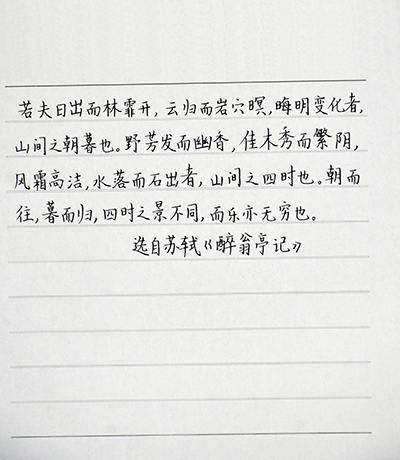 若夫日出而林霏开,云归而岩穴暝,晦明变化者,
山间之朝暮也。野芳发而幽香,佳木秀而繁阴,
风霜高洁,水落而石出者,山间之四时也。朝而
往,暮而归,四时之景不同,而乐亦无穷也。
选自苏轼《醉翁亭记》